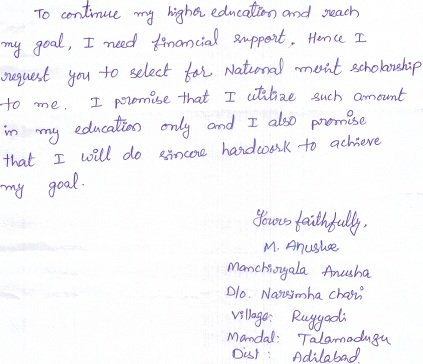 To continue my higher education and reach
my goal, I need financial support. Hence I
request you to select for National merit scholarship
to me. I promise that I utilize such amount
in my education only and I also promise
that I will do sincere hardwork to achieve
my goal.
Yours faithfully,
M. Anusha
Manchiryala Anusha
D/o. Narsimha chari
Village: Ruyyadi
Mandal: Talamadugu
Dist: Adilabad.